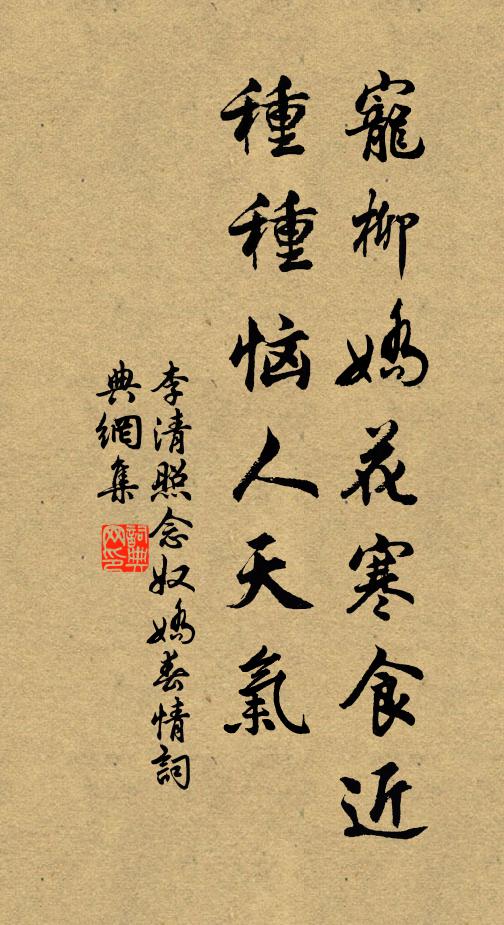 寵柳嬌花寒食近
種種恼人天氣
李清照念奴嬌春情詞
典網集
詞典网印